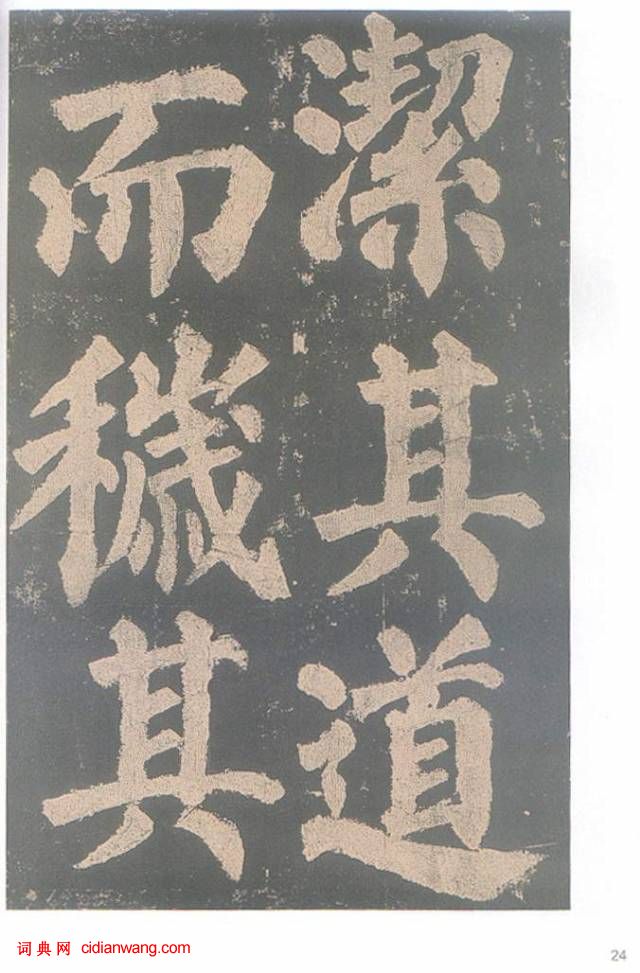 潔其道
而穢其
词典网 cidianwang.com
24